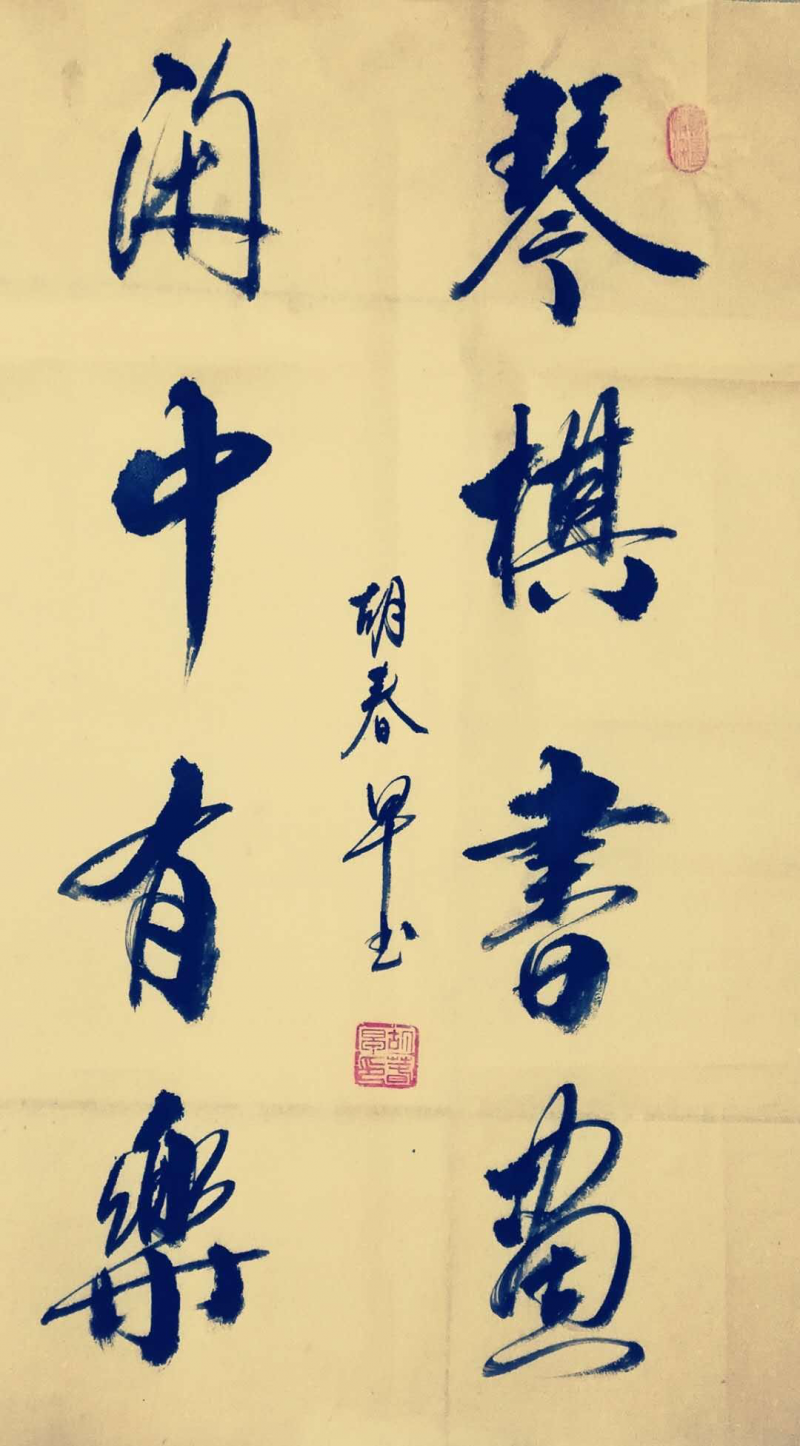 琴棋書畫
閑中有樂
胡春早书
胡春早印